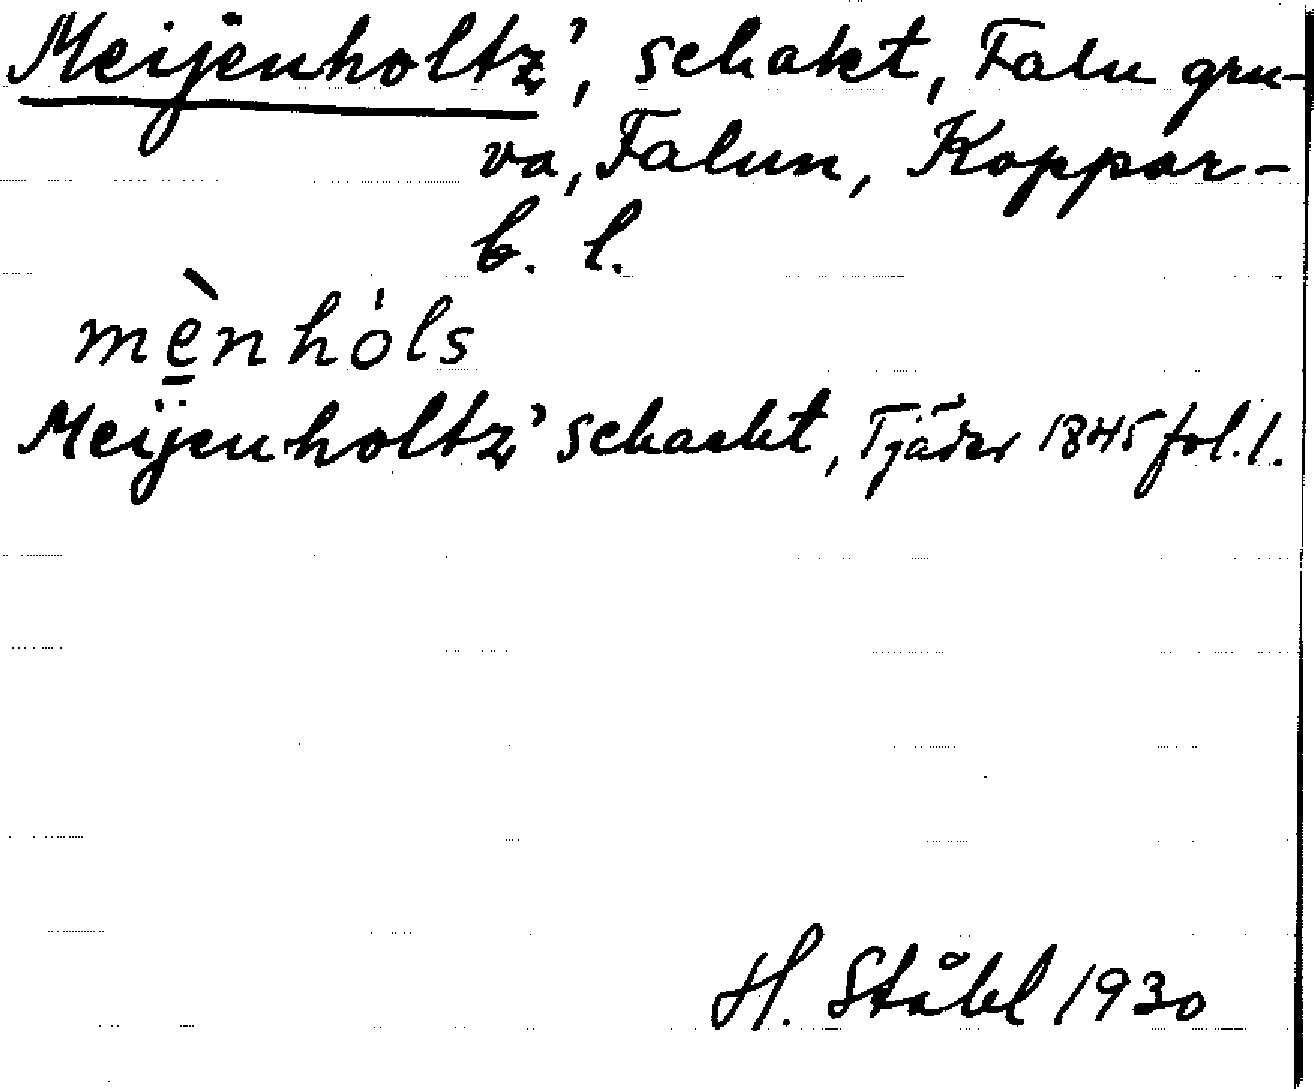 Meijenholtz', schakt, Falu gru-
va, Falun, Koppar-
b. l.
mènhóls
Meijenholtz' schackt, Tjäder 1845 fol. 1.
H. Ståhl 1930